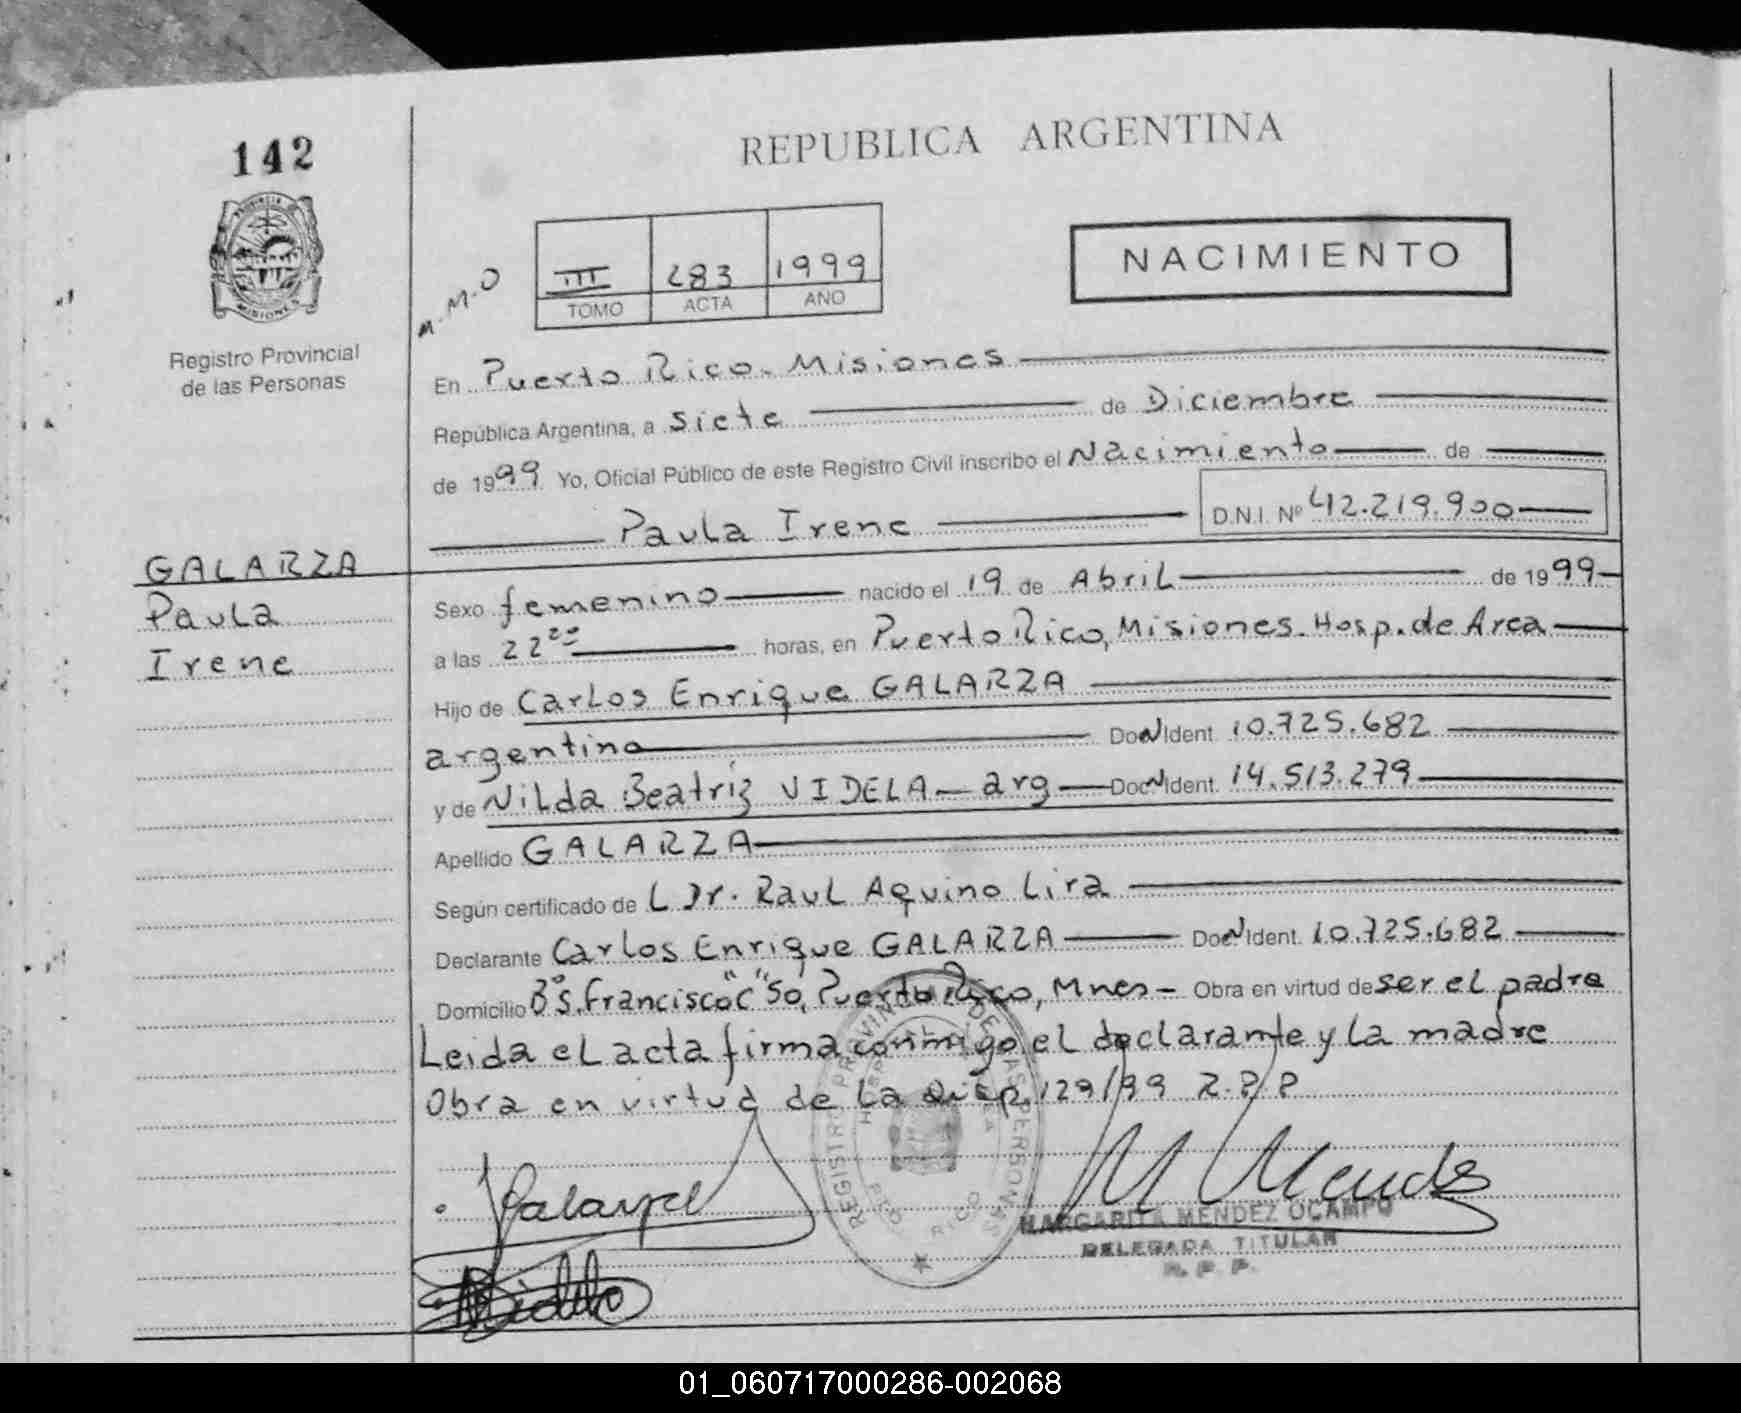 142
REPUBLICA ARGENTINA
PROVINCIA
MISIONES
Registro Provincial
de las Personas
M.M.O
III 283 1999
TOMO ACTA AÑO
NACIMIENTO
En Puerto Rico. Misiones
República Argentina, a siete de Diciembre
de 1999 Yo, Oficial Público de este Registro Civil inscribo el Nacimiento de
Paula Irene D.N.I. Nº 42.219.900
GALARZA
Paula
Irene
Sexo femenino nacido el 19 de Abril de 1999
a las 22 horas, en Puerto Rico, Misiones. Hosp. de Area
Hijo de Carlos Enrique GALARZA
argentino Doc N Ident. 10.725.682
y de Nilda Beatriz VIDELA - arg - Doc N Ident. 14.513.279
Apellido GALARZA
Según certificado de L Dr. Raul Aquino Lira
Declarante Carlos Enrique GALARZA Doc N Ident. 10.725.682
Domicilio Bº S. Francisco "C" 50, Puerto Rico, Mnes - Obra en virtud de ser el padre
Leida el acta firma conmigo el declarante y la madre
Obra en virtud de la Disp. 129/99 R.P.P
REGISTRO PROVINCIAL DE LAS PERSONAS
PTO. RICO
MARGARITA MENDEZ OCAMPO
DELEGADA TITULAR
R. P. P.
01_060717000286-002068